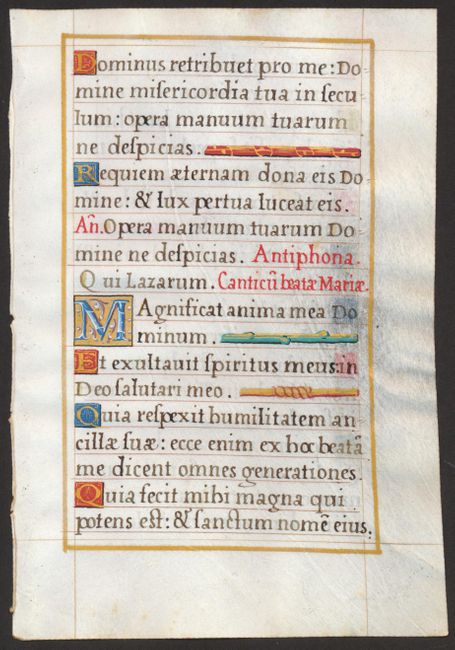 Dominus retribuet pro me: Do
mine misericordia tua in secu
lum: opera manuum tuarum
ne despicias.
Requiem æternam dona eis Do
mine: & lux pertua luceat eis.
Añ. Opera manuum tuarum Do
mine ne despicias. Antiphona.
Qui Lazarum. Canticũ beatæ Mariæ.
Magnificat anima mea Do
minum.
Et exultauit spiritus meus: in
Deo salutari meo.
Quia respexit humilitatem an
cillæ suæ: ecce enim ex hoc beatã
me dicent omnes generationes.
Quia fecit mihi magna qui
potens est: & sanctum nomẽ eius.